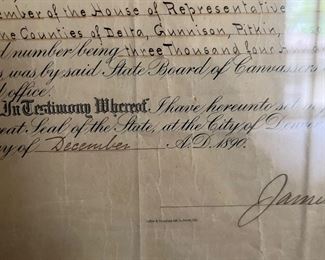 mber of the House of Representative
he Counties of Delta, Gunnison, Pitkin,
d number being three Thousand four
s was by said State Board of Canvassers
office.
In Testimony Whereof, I have hereunto set
eat Seal of the State, at the City of Denv
ay of December A.D. 1890.
Jame